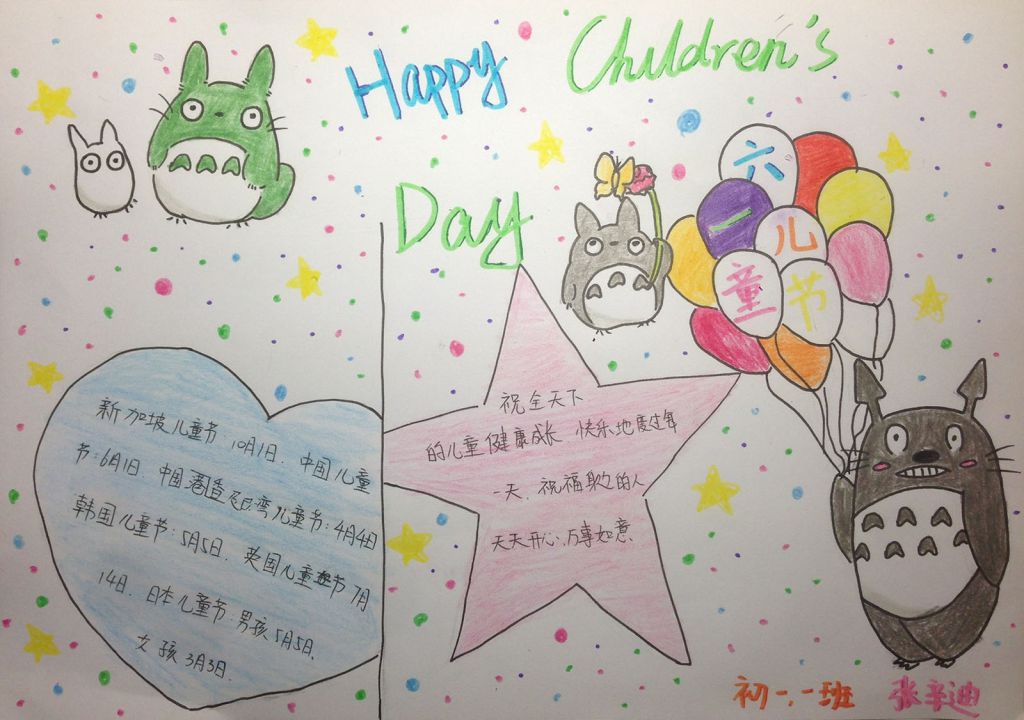 Happy Children's
Day
六
一儿
童节
新加坡儿童节 10月1日. 中国儿童
节:6月1日 中国港 台湾儿童节:4月4日
韩国儿童节:5月5日. 英国儿童节7月
14日. 日本儿童节:男孩5月5日.
女孩3月3日.
祝全天下
的儿童健康成长 快乐地度过
一天. 祝福 的人
天天开心,万事如意
初一.一班 张辛迪